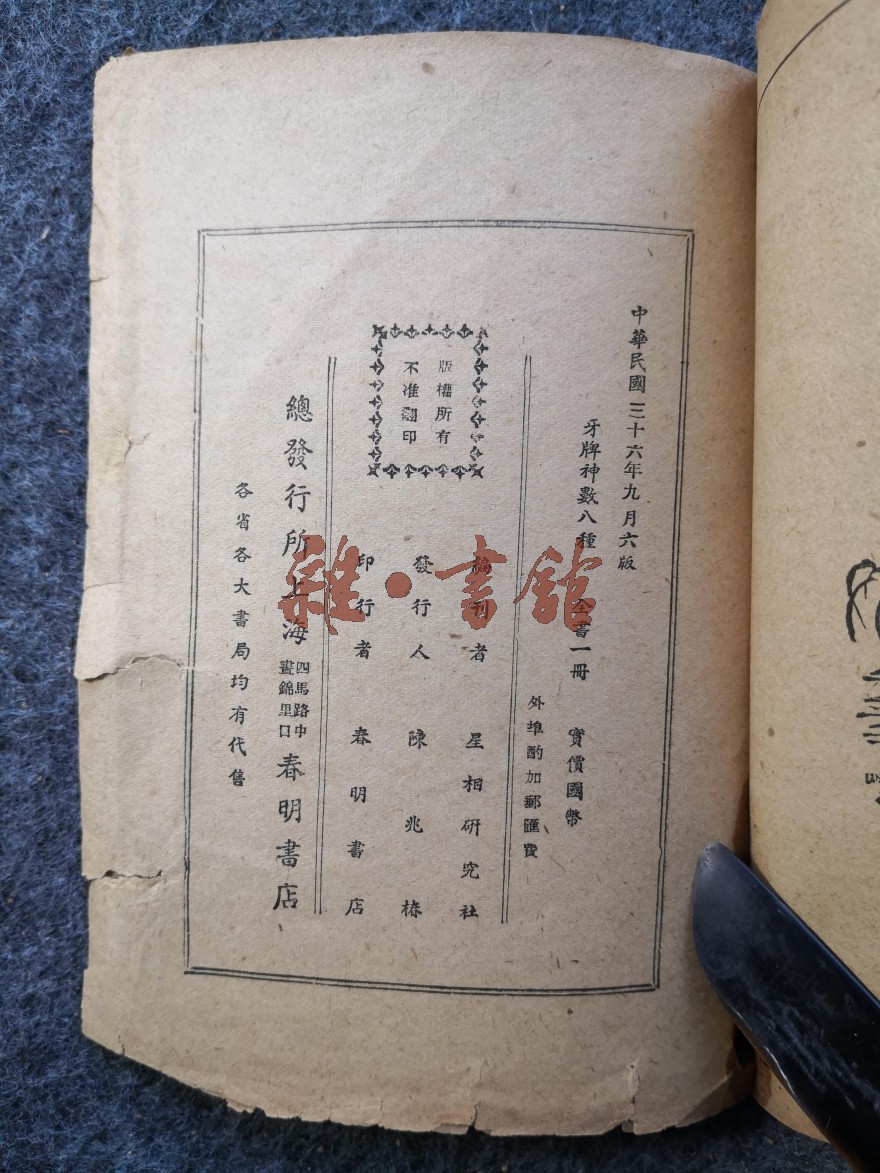 中華民國三十六年九月六版
牙牌神數八種 全書一冊 實價國幣
外埠酌加郵匯費
版權所有
不准翻印
編刊者 星相研究社
發行人 陳兆椿
印行者 春明書店
總發行所上海四馬路中晝錦里口春明書店
各省各大書局均有代售
雜·書館